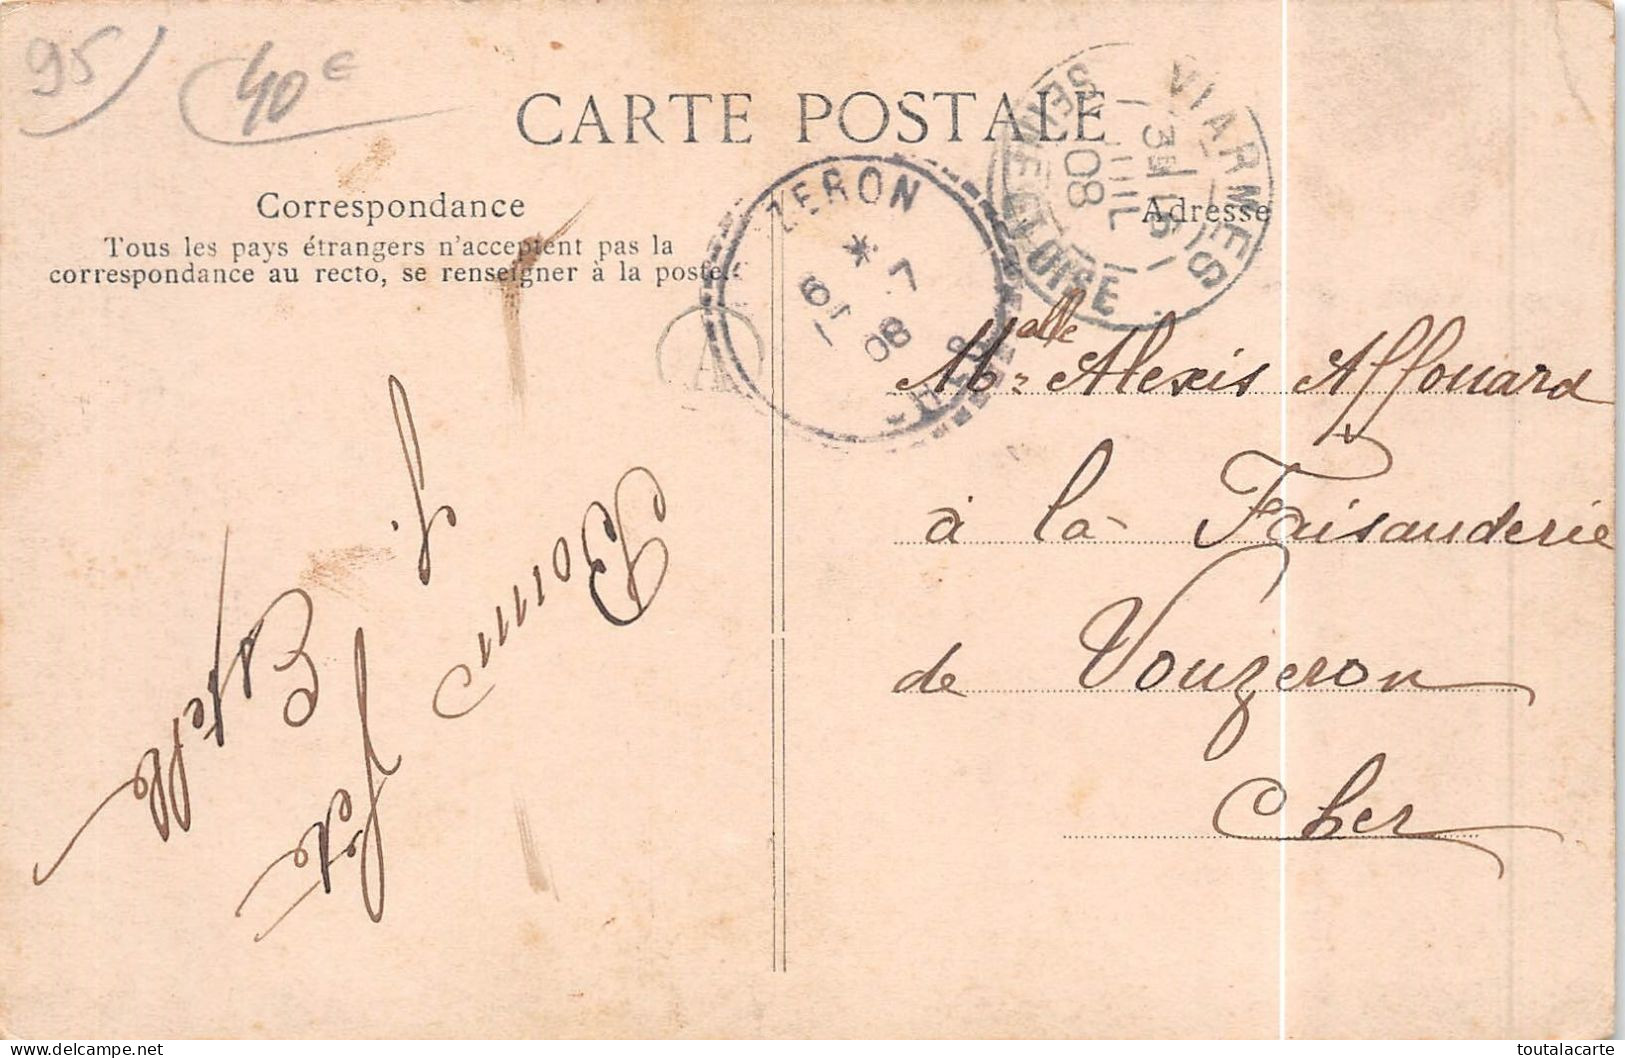 95
40€
CARTE POSTALE
Correspondance
Tous les pays étrangers n'acceptent pas la
correspondance au recto, se renseigner à la poste.
ZERON
*
6 - 7
08
CHER
A
VIARMES
5 JUIL
08
SEINE-ET-OISE
Adresse
Alexis Affouard
à la Faisanderie
de Vouzeron
Cher
Bonne
fete
J.
Estelle
toutalacarte